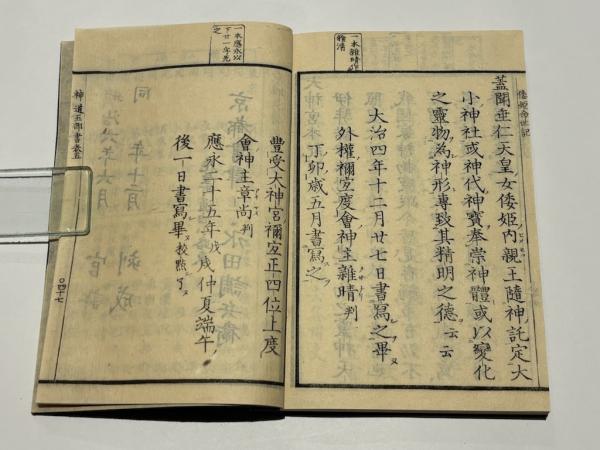 一本雑晴作
倭姫命世記
蓋聞垂仁天皇女倭姫內親王隨神託定大
小神社或神代神寶奉崇神體或以變化
之靈物為神形專致其精明之德云云
大治四年十二月廿七日書寫之畢
外權禰宜度會神主雜晴判
丁卯歳五月書寫之
一本應永以
下廿一字无
之
豐受大神宮禰宜正四位上度
會神主章尚判
應永二十五年戊戌仲夏端午
後一日書寫畢 校點了
神道五部書卷五
〇四十七